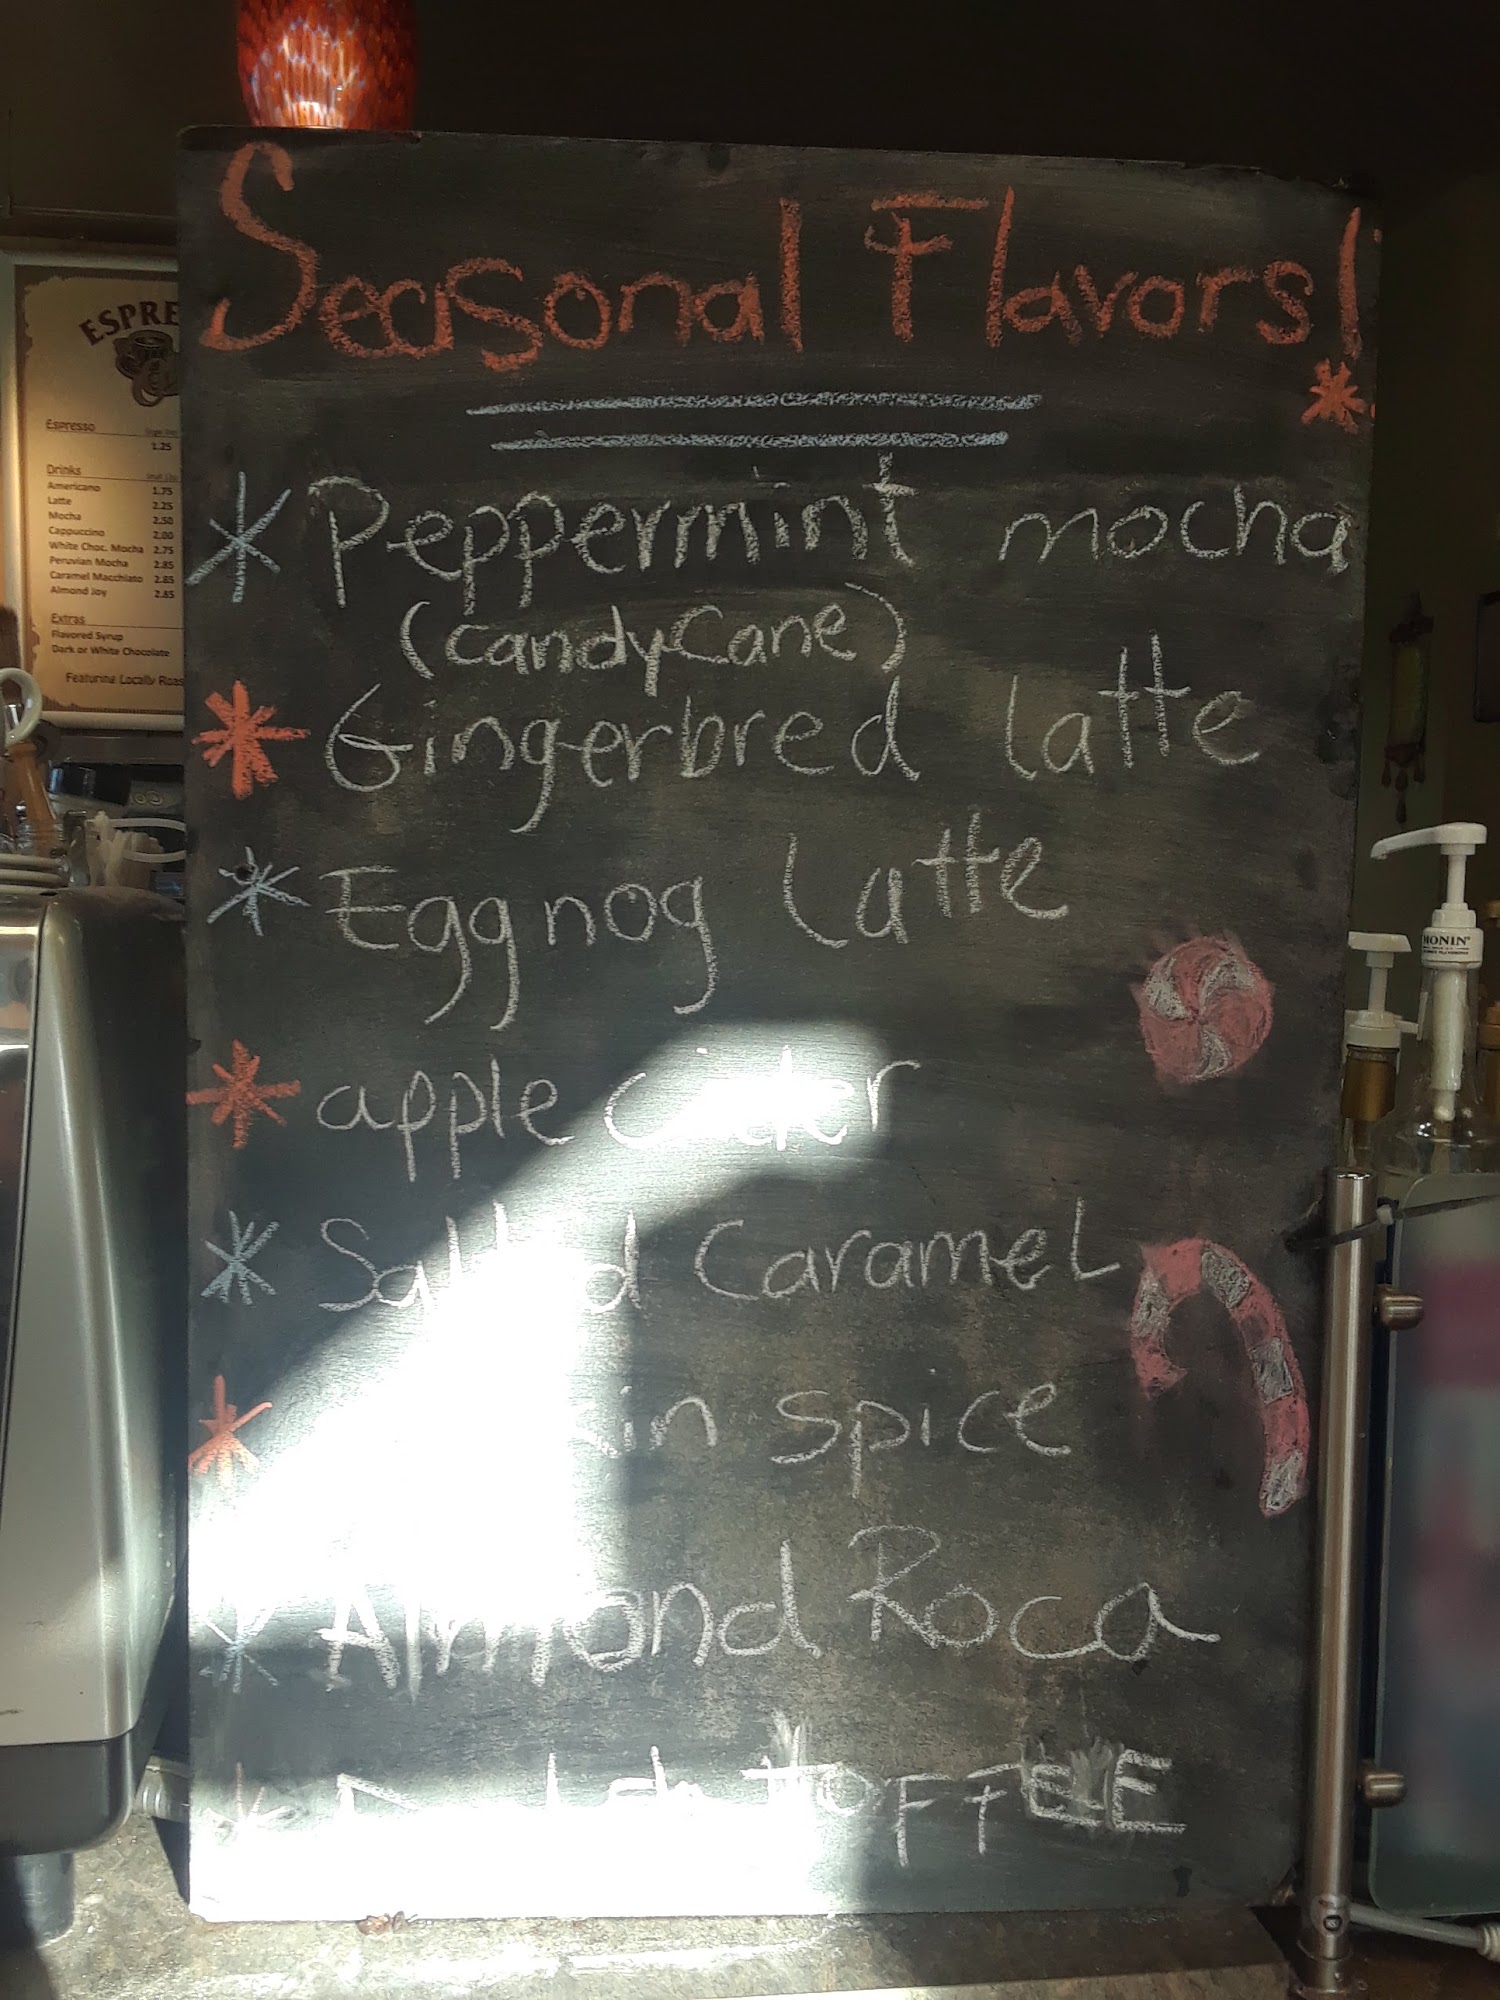 Seasonal Flavors!
Peppermint mocha
(candycane)
Gingerbred latte
Eggnog latte
apple cider
Salted Caramel
spice
Almond Roca
ESPRE
Espresso
1.25
Drinks
Americano 1.75
Latte 2.25
Mocha 2.50
Cappuccino 2.00
White Choc. Mocha 2.75
Peruvian Mocha 2.85
Caramel Macchiato 2.85
Almond Joy 2.85
Extras
Flavored Syrup
Dark or White Chocolate
Featuring Locally Roas
MONIN